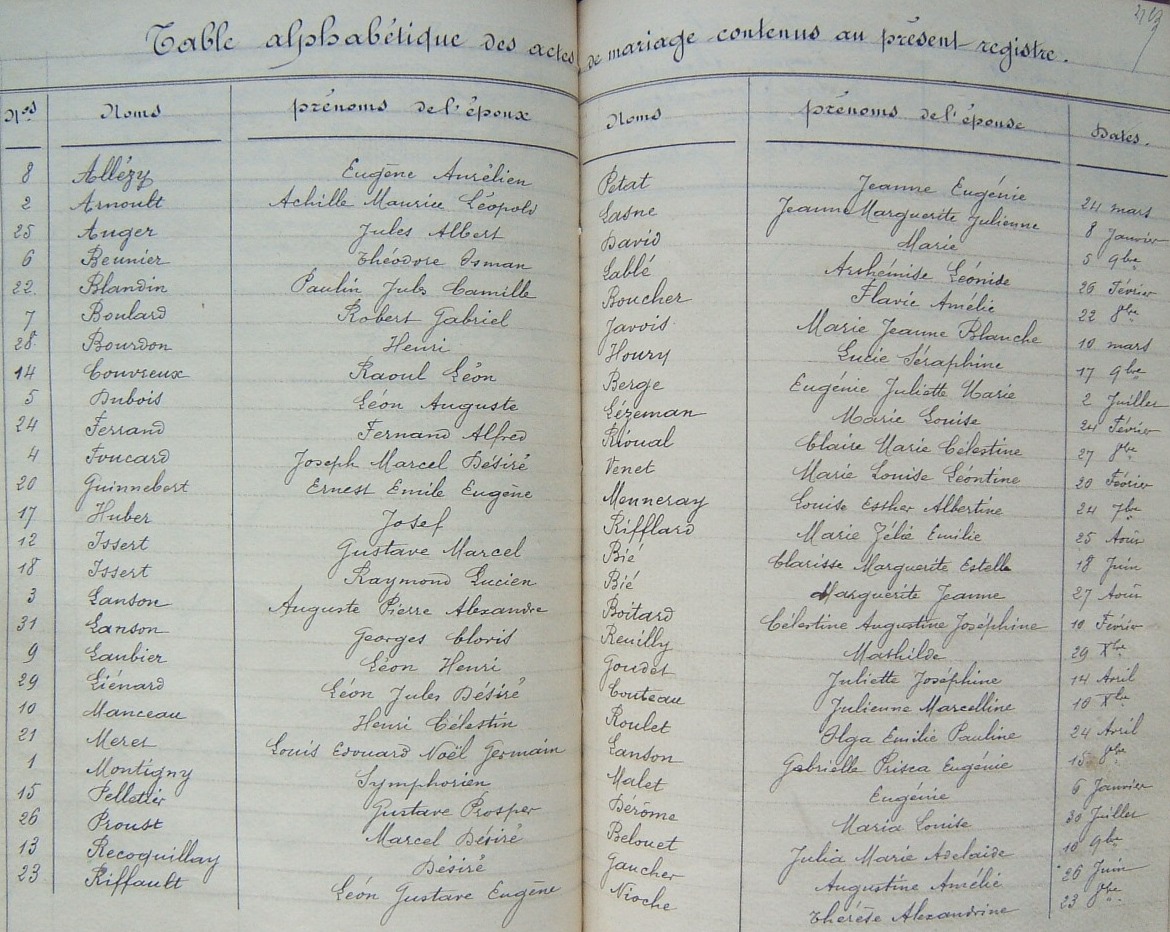 Table alphabétique des actes de mariage contenus au présent registre.
Nos Noms prénoms de l'époux Noms prénoms de l'épouse Dates.
8 Allézy Eugène Aurélien Petat Jeanne Eugénie 24 mars
2 Arnoult Achille Maurice Léopold Lasne Jeanne Marguerite Julienne 8 Janvier
25 Auger Jules Albert David Marie 5 9bre
6 Beunier Théodore Osman Lablé Arthémise Léonise 26 Février
22 Blandin Paulin Jules Camille Boucher Flavie Amélie 22 8bre
7 Boulard Robert Gabriel Javois Marie Jeanne Blanche 10 mars
28 Bourdon Henri Houry Lucie Séraphine 17 9bre
14 Couvreux Raoul Léon Berge Eugénie Juliette Marie 2 Juillet
5 Dubois Léon Auguste Lézeman Marie Louise 24 Février
24 Ferrand Fernand Alfred Rioual Claire Marie Célestine 27 8bre
4 Foucard Joseph Marcel Désiré Venet Marie Louise Léontine 20 Février
20 Guinnebert Ernest Emile Eugène Menneray Louise Esther Albertine 24 7bre
17 Huber Josef Rifflard Marie Zélie Emilie 25 Août
12 Issert Gustave Marcel Bié Clarisse Marguerite Estelle 18 Juin
18 Issert Raymond Lucien Bié Marguerite Jeanne 27 Août
3 Lanson Auguste Pierre Alexandre Boitard Célestine Augustine Joséphine 10 Février
31 Lanson Georges Clovis Reuilly Mathilde 29 Xbre
9 Laubier Léon Henri Goudet Juliette Joséphine 14 Avril
29 Liénard Léon Jules Désiré Couteau Julienne Marcelline 10 Xbre
10 Manceau Henri Célestin Roulet Olga Emilie Pauline 24 Avril
21 Meret Louis Edouard Noël Germain Lanson Gabrielle Prisca Eugénie 15 8bre
1 Montigny Symphorien Malet Eugénie 6 Janvier
15 Pelletier Gustave Prosper Dérôme Maria Louise 30 Juillet
26 Proust Marcel Désiré Belouet Julia Marie Adelaide 10 9bre
13 Recoquillay Désiré Gaucher Augustine Amélie 26 Juin
23 Riffault Léon Gustave Eugène Nioche Thérèse Alexandrine 23 8bre